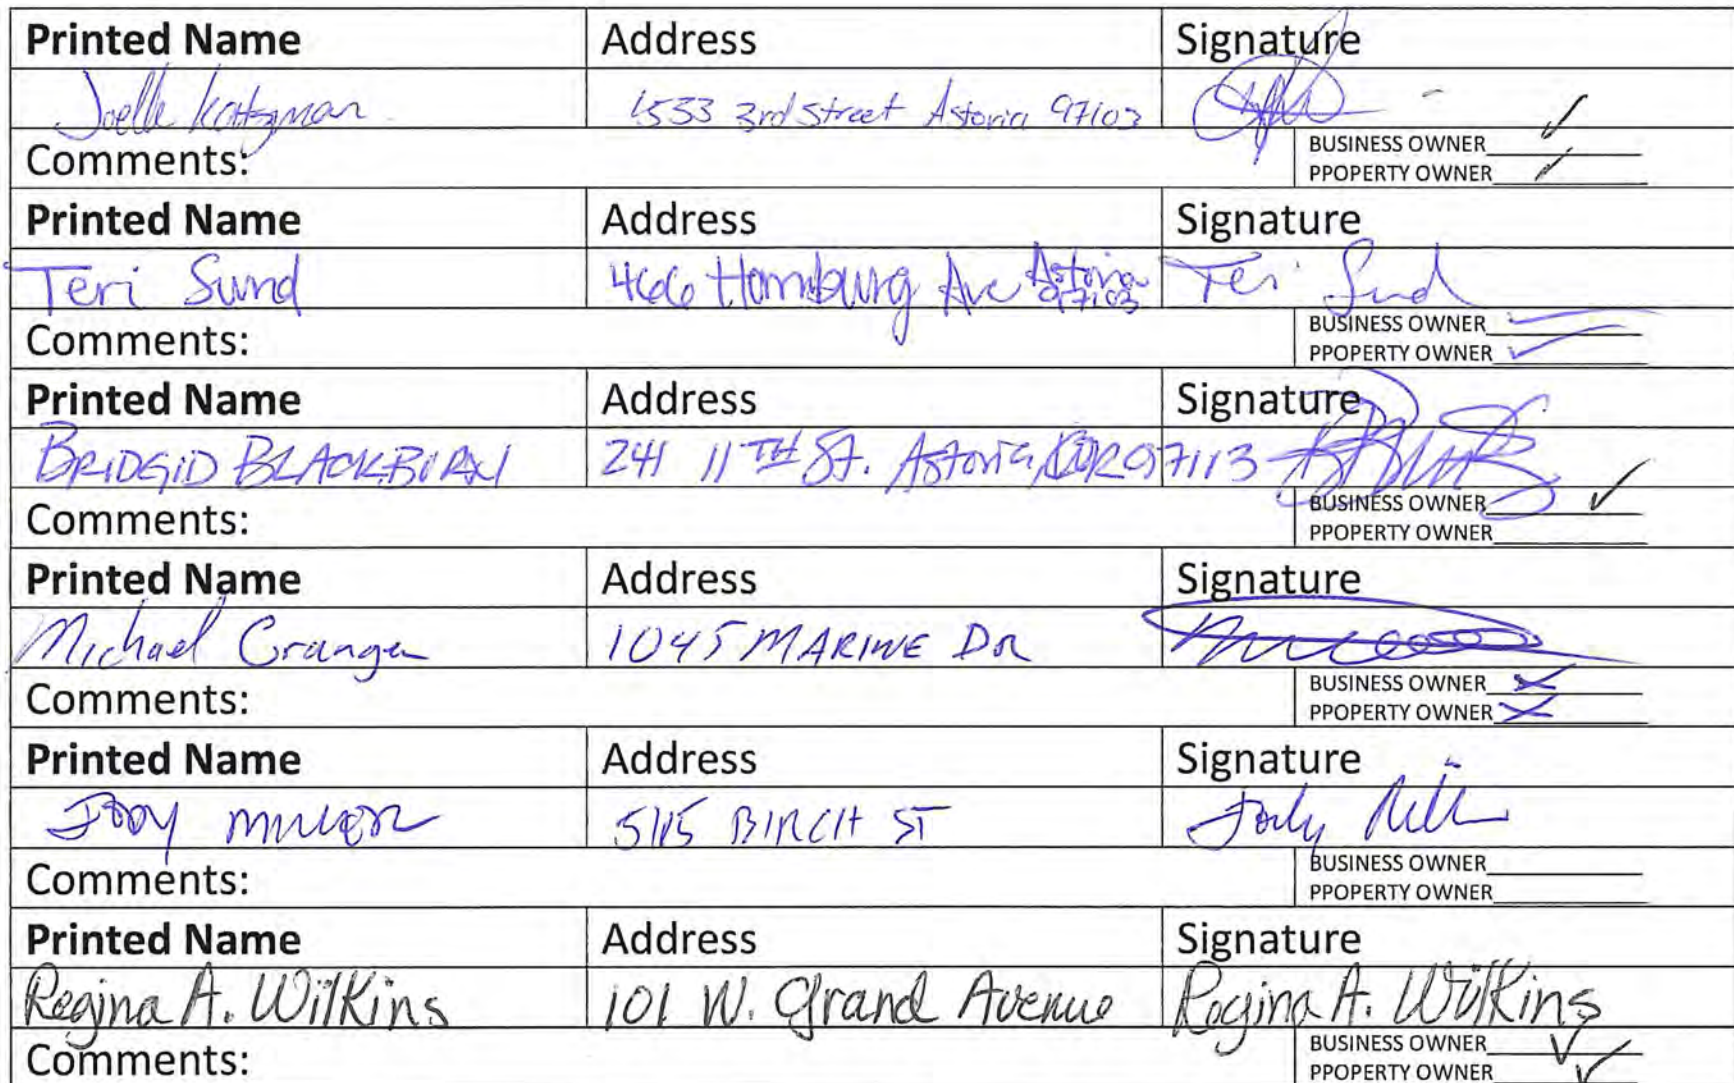 Printed Name Address Signature
Joelle Katzman 1533 3rd Street Astoria 97103
Comments: BUSINESS OWNER ✓
PPOPERTY OWNER ✓
Printed Name Address Signature
Teri Sund 466 Hamburg Ave Astoria 97103 Teri Sund
Comments: BUSINESS OWNER ✓
PPOPERTY OWNER ✓
Printed Name Address Signature
BRIDGID BLACKBURN 241 11TH ST. Astoria, OR 97113
Comments: BUSINESS OWNER ✓
PPOPERTY OWNER
Printed Name Address Signature
Michael Granger 1045 MARINE DR
Comments: BUSINESS OWNER X
PPOPERTY OWNER X
Printed Name Address Signature
JODY MILLER 5115 BIRCH ST Jody Miller
Comments: BUSINESS OWNER
PPOPERTY OWNER
Printed Name Address Signature
Regina A. Wilkins 101 W. Grand Avenue Regina A. Wilkins
Comments: BUSINESS OWNER ✓
PPOPERTY OWNER ✓